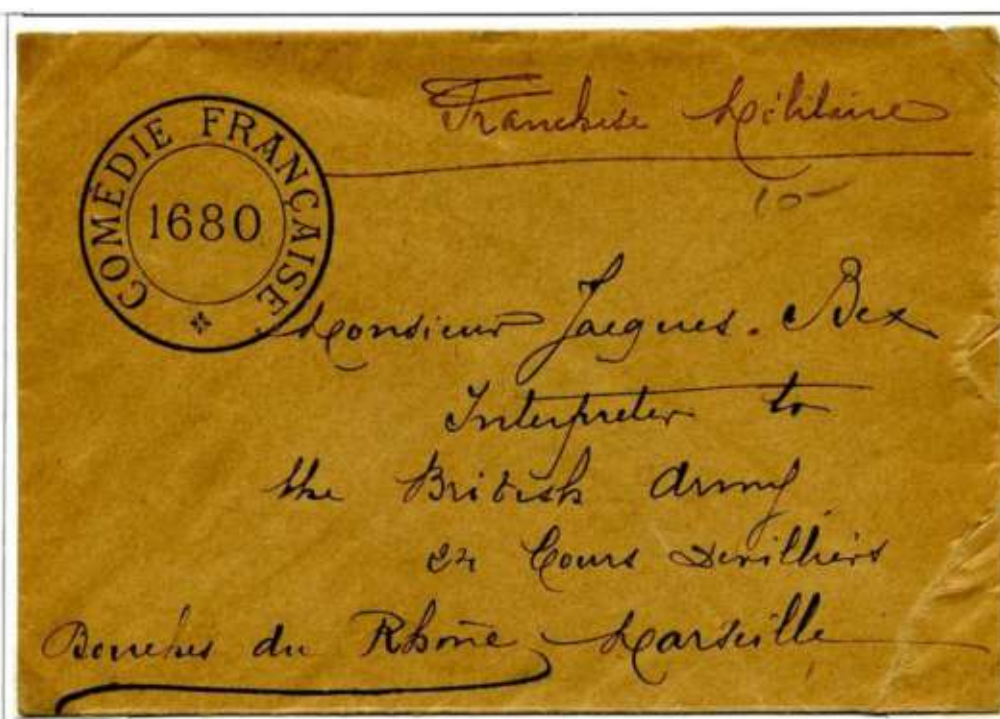 COMÉDIE FRANÇAISE
1680
Franchise Militaire
10-
Monsieur Jacques. Bex
Interpreter to
the British Army
Cours Devilliers
Bouches du Rhône Marseille